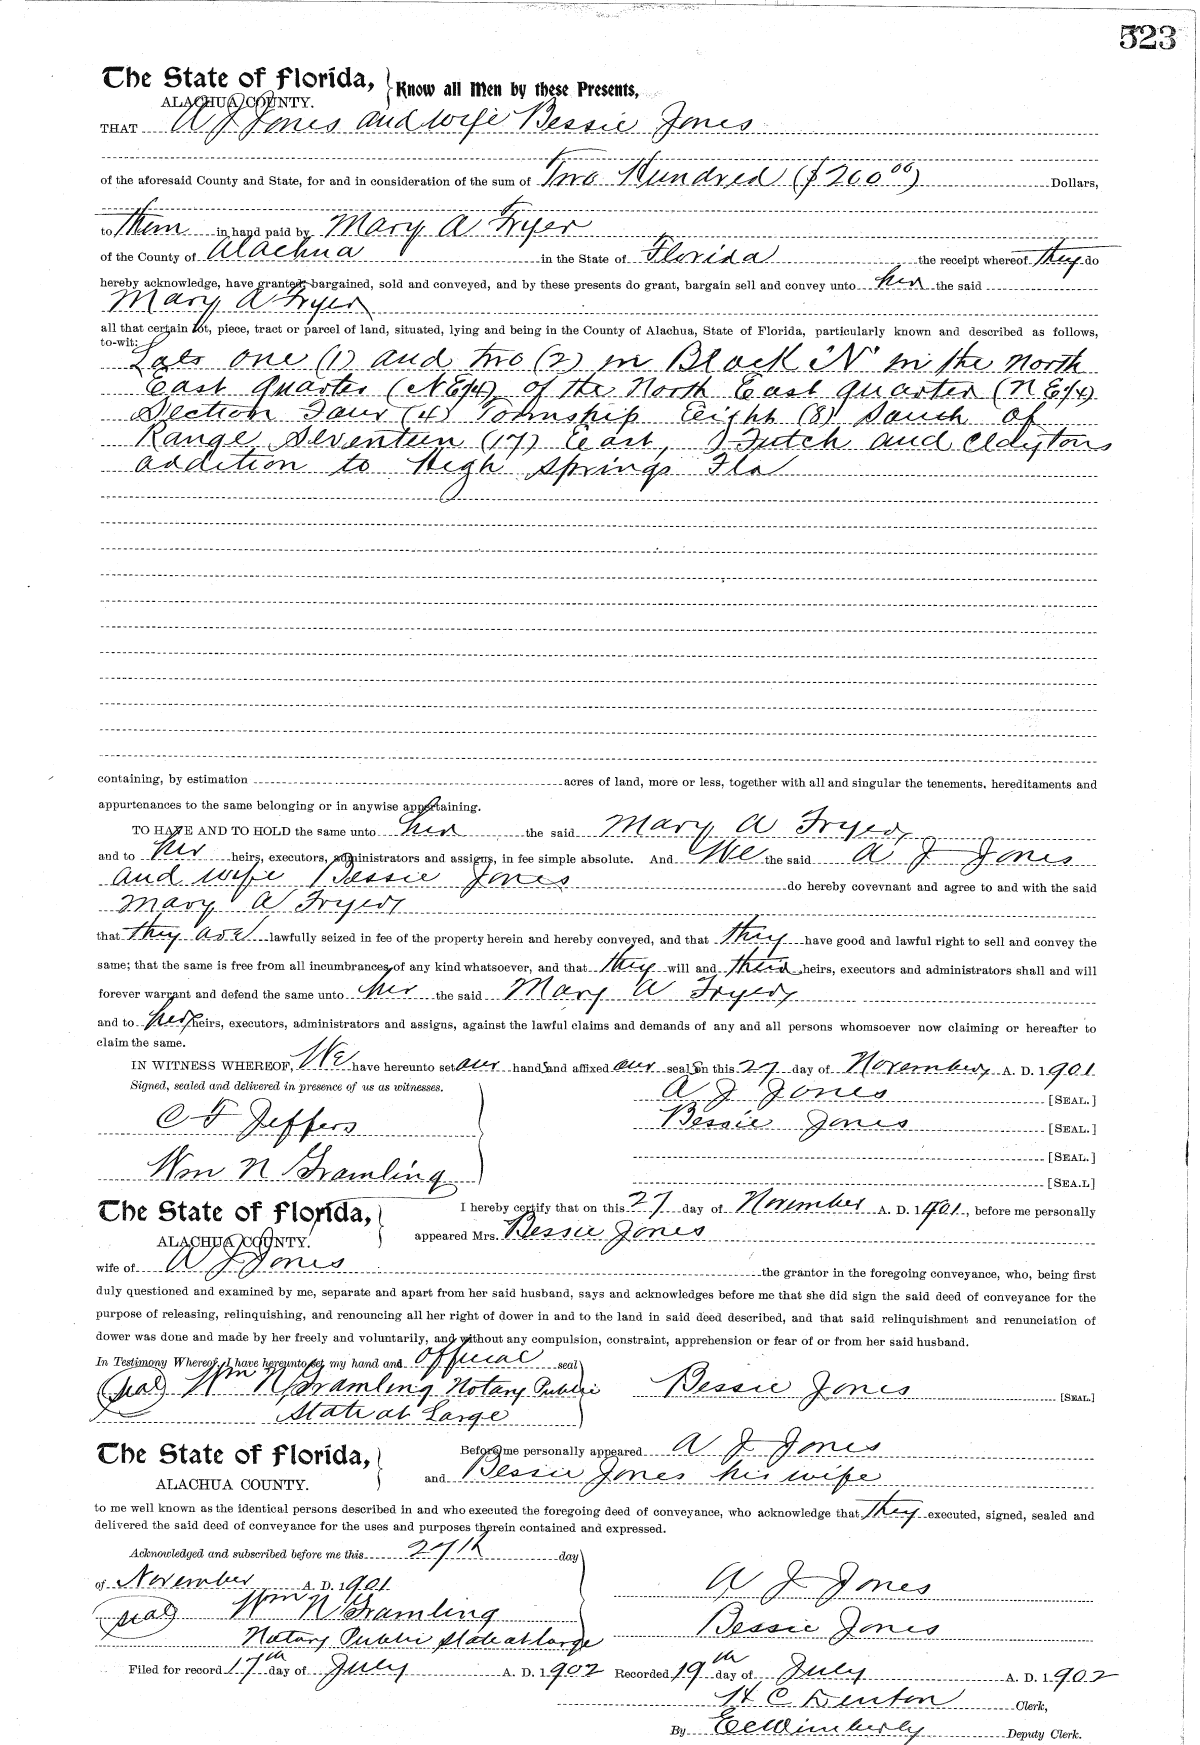 523
The State of Florida, Know all Men by these Presents,
ALACHUA COUNTY.
THAT A J Jones and wife Bessie Jones
of the aforesaid County and State, for and in consideration of the sum of Two Hundred ($200 00) Dollars,
to them in hand paid by Mary A Fryer
of the County of Alachua in the State of Florida the receipt whereof they do
hereby acknowledge, have granted, bargained, sold and conveyed, and by these presents do grant, bargain sell and convey unto her the said
Mary A Fryer
all that certain lot, piece, tract or parcel of land, situated, lying and being in the County of Alachua, State of Florida, particularly known and described as follows,
to-wit:
Lots one (1) and two (2) in Block "N" in the North
East quarter (NE¼) of the North East quarter (NE¼)
Section Four (4) Township Eight (8) South of
Range Seventeen (17) East, Futch and Claytons
addition to High Springs Fla
containing, by estimation acres of land, more or less, together with all and singular the tenements, hereditaments and
appurtenances to the same belonging or in anywise appertaining.
TO HAVE AND TO HOLD the same unto her the said Mary A Fryer,
and to her heirs, executors, administrators and assigns, in fee simple absolute. And We the said A J Jones
and wife Bessie Jones do hereby covevnant and agree to and with the said
Mary A Fryer,
that they are lawfully seized in fee of the property herein and hereby conveyed, and that they have good and lawful right to sell and convey the
same; that the same is free from all incumbrances of any kind whatsoever, and that they will and their heirs, executors and administrators shall and will
forever warrant and defend the same unto her the said Mary A Fryer,
and to her heirs, executors, administrators and assigns, against the lawful claims and demands of any and all persons whomsoever now claiming or hereafter to
claim the same.
IN WITNESS WHEREOF, We have hereunto set our hands and affixed our seals on this 27 day of November, A. D. 1901
Signed, sealed and delivered in presence of us as witnesses. A J Jones [SEAL.]
C F Jeffers Bessie Jones [SEAL.]
[SEAL.]
Wm N Gramling [SEA.L]
The State of Florida, I hereby certify that on this 27 day of November A. D. 1901, before me personally
ALACHUA COUNTY. appeared Mrs. Bessie Jones
wife of A J Jones the grantor in the foregoing conveyance, who, being first
duly questioned and examined by me, separate and apart from her said husband, says and acknowledges before me that she did sign the said deed of conveyance for the
purpose of releasing, relinquishing, and renouncing all her right of dower in and to the land in said deed described, and that said relinquishment and renunciation of
dower was done and made by her freely and voluntarily, and without any compulsion, constraint, apprehension or fear of or from her said husband.
In Testimony Whereof, I have hereunto set my hand and official seal
(seal) Wm N Gramling Notary Public Bessie Jones [SEAL.]
State at Large
The State of Florida, Before me personally appeared A J Jones
ALACHUA COUNTY. and Bessie Jones his wife
to me well known as the identical persons described in and who executed the foregoing deed of conveyance, who acknowledge that they executed, signed, sealed and
delivered the said deed of conveyance for the uses and purposes therein contained and expressed.
Acknowledged and subscribed before me this 27th day
of November A. D. 1901 A J Jones
(seal) Wm N Gramling Bessie Jones
Notary Public State at Large
Filed for record 17th day of July A. D. 1902 Recorded 19th day of July A. D. 1902
H C Denton Clerk,
By E C Wimberly Deputy Clerk.